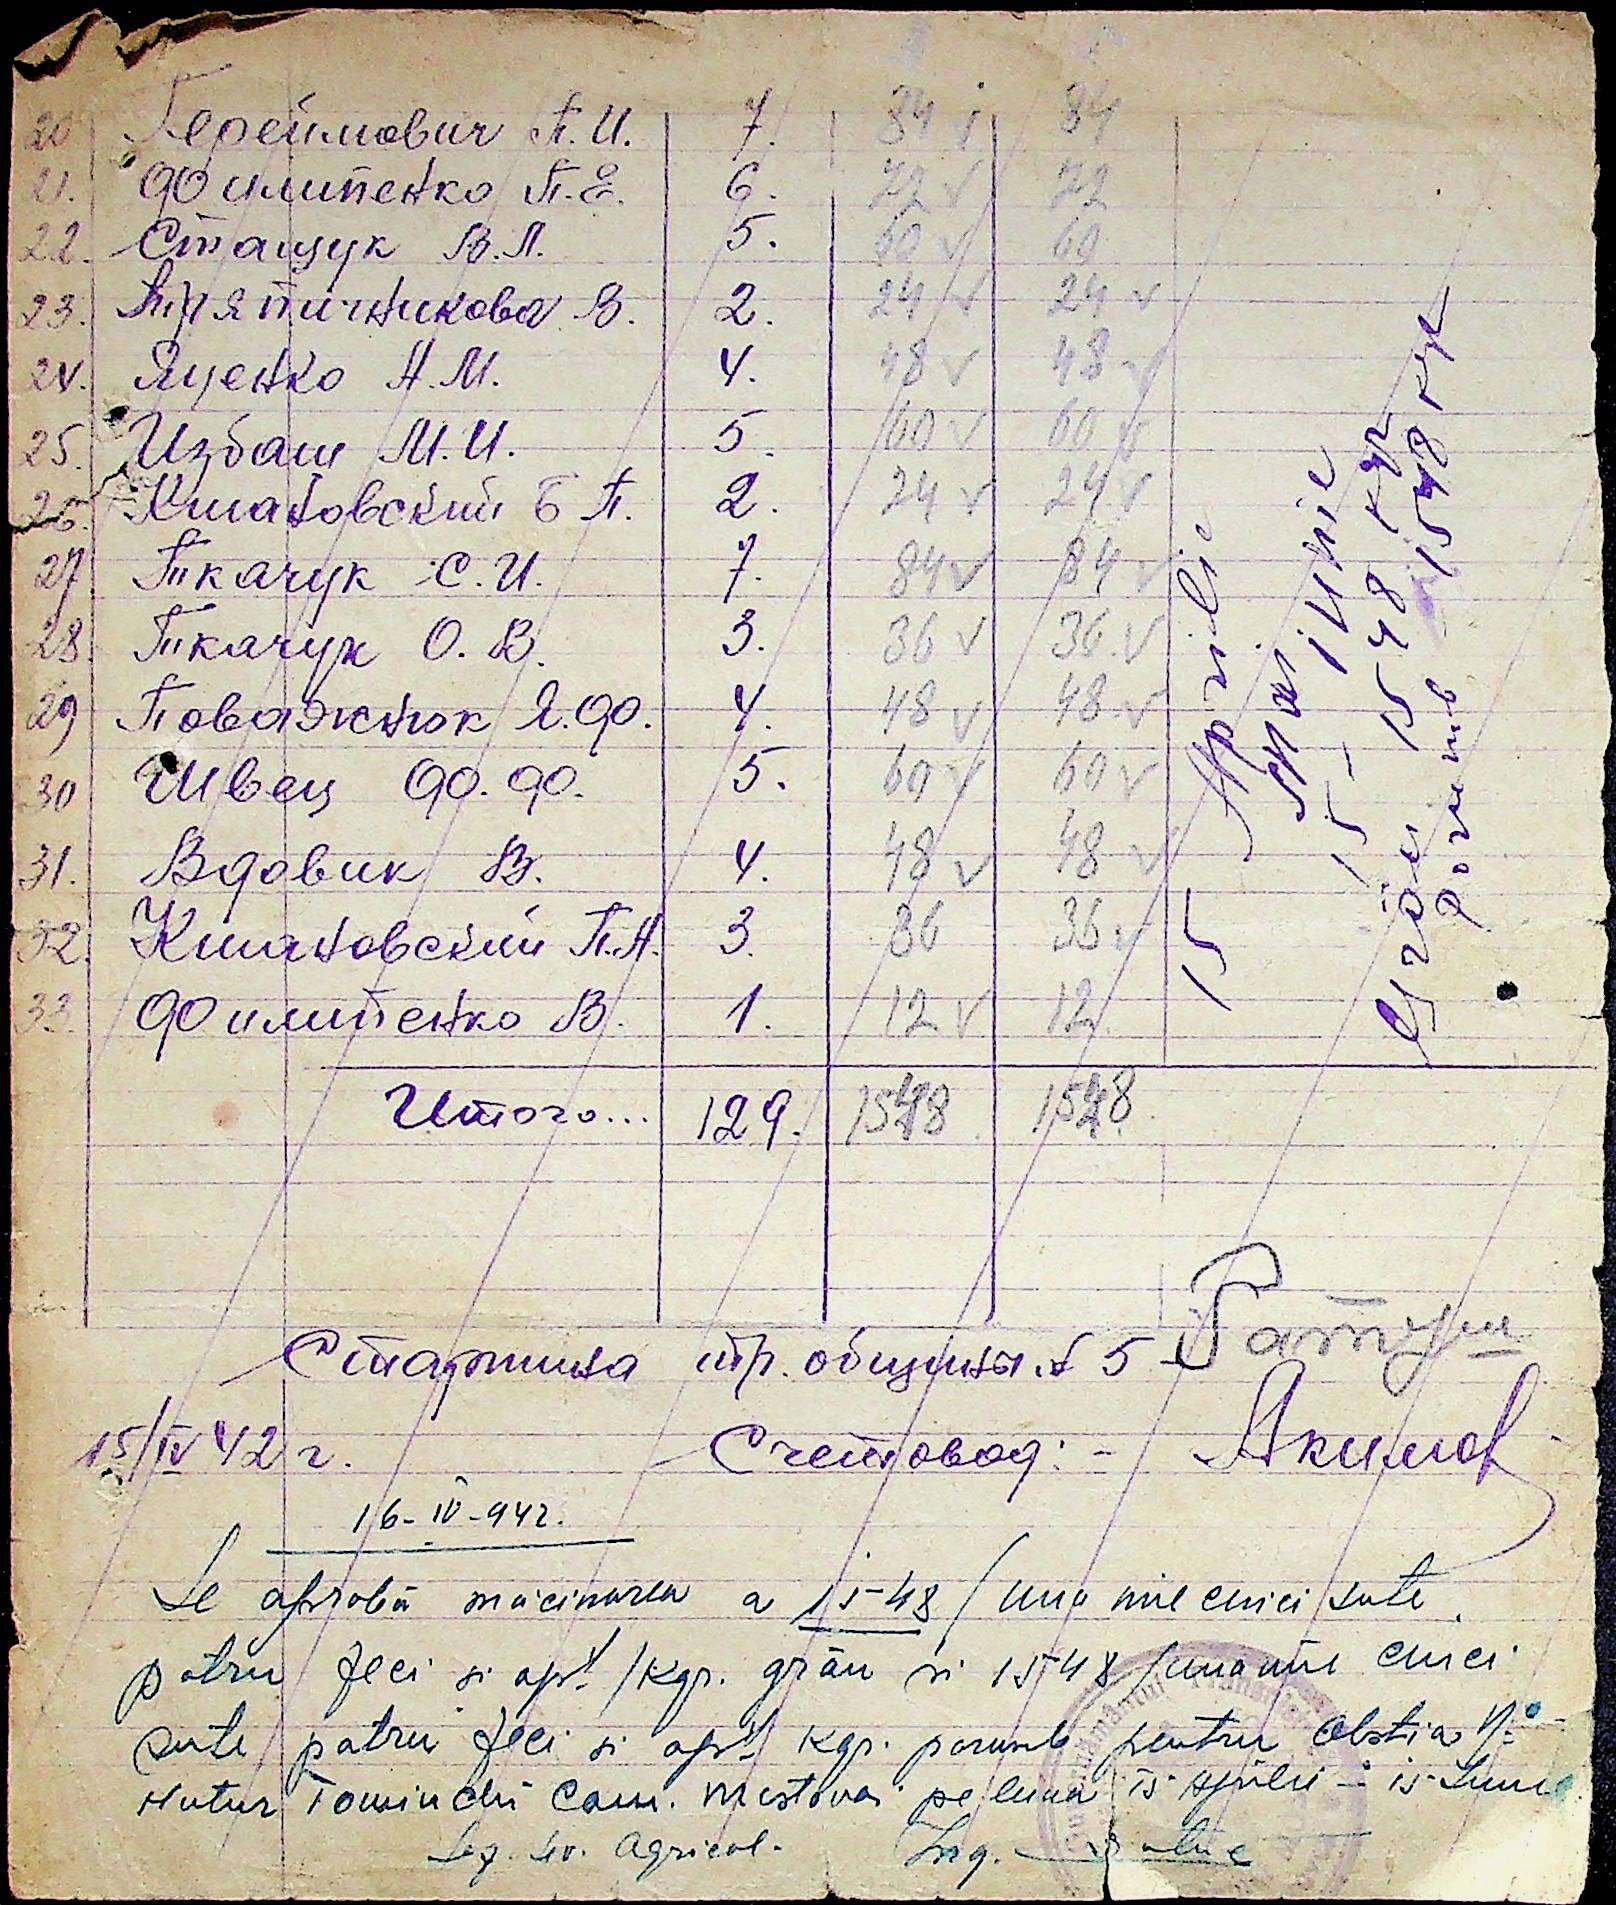 20 Гереймович П. И. 7. 84 84
21. Филипенко П. Е. 6. 72 v 72
22. Стащук В. Л. 5. 60 v 60
23. Тряпичникова В. 2. 24 v 24 v
24. Яценко А. М. 4. 48 v 48 v
25. Избаш М. И. 5 60 v 60 v
26. Климановский Б П. 2. 24 v 24 v
27 Ткачук С. И. 7. 84 v 84 v
28. Ткачук О. В. 3. 36 v 36 v
29 Поважнюк Я. Ф. 4. 48 v 48 v
30 Швец Ф. Ф. 5. 60 v 60 v
31. Вдовик В. 4. 48 v 48 v
32. Климановский П. А. 3. 36 36 v
33. Филипенко В. 1. 12 v 12
Итого... 129. 1548 1548
15 Aprilie
Mai
15 - iunie
Grâu 1548 kgr
porumb 1548 kgr
Старшина тр. общины № 5
15/IV 42 г. Счетовод: - Якимов
16-IV-942.
Se aprobă măcinarea a 1548 /una mie cinci sute
patru zeci si opt /kgr. grâu si 1548 /una mie cinci
sute patru zeci si opt kgr. porumb pentru Obstia No
Hutur Com. Mostovoi pe luna 15 Aprilie - 15 Iunie
Seg. Sv. Agricol. Ing.